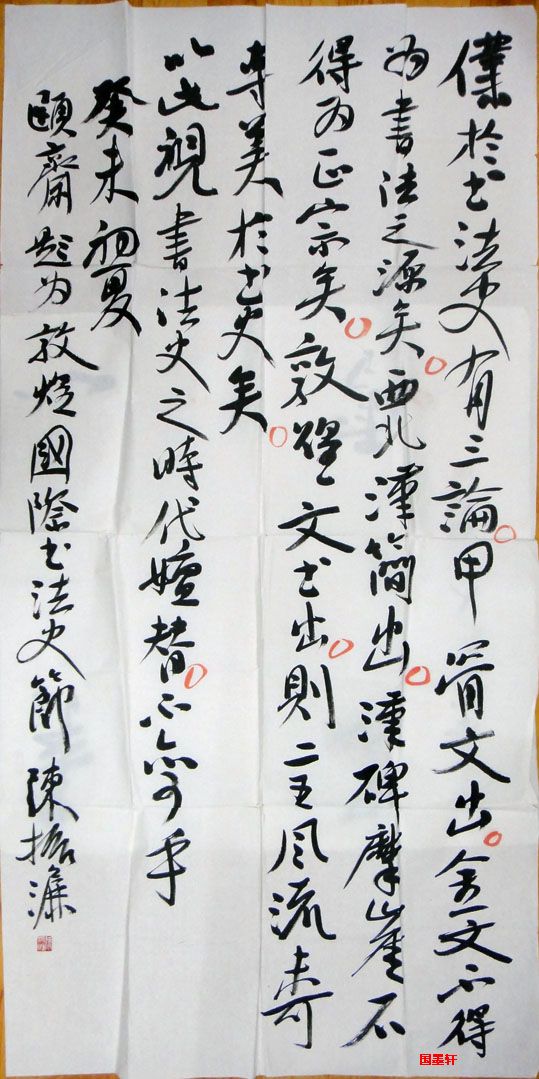 僕於书法史有三論甲骨文出金文不得
为書法之源矣西北漢簡出漢碑摩崖不
得为正宗矣敦煌文书出則二王风流未可
専美於书史矣
以此視書法史之時代嬗替不亦可乎
癸未初夏
頤齋題为敦煌國際书法史節陳振濂
国墨轩